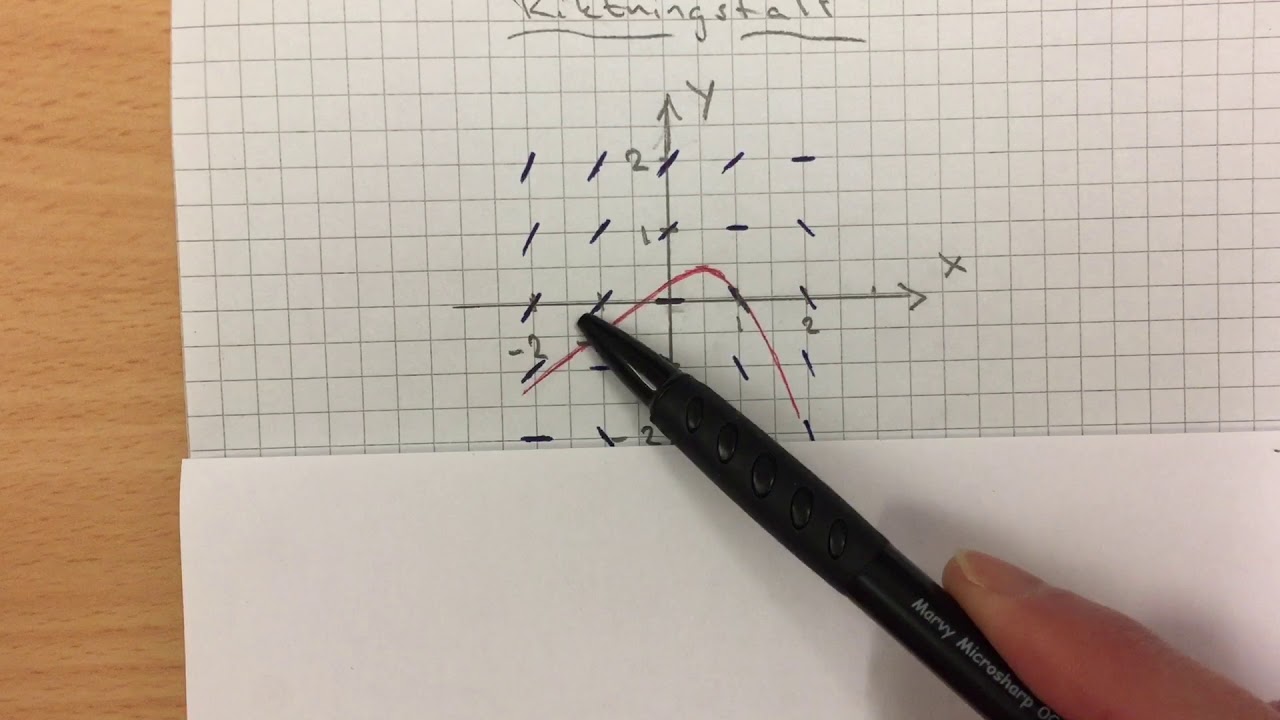 Riktningsfält
y
2
1
x
1
2
-2
-2
Marvy Microsharp